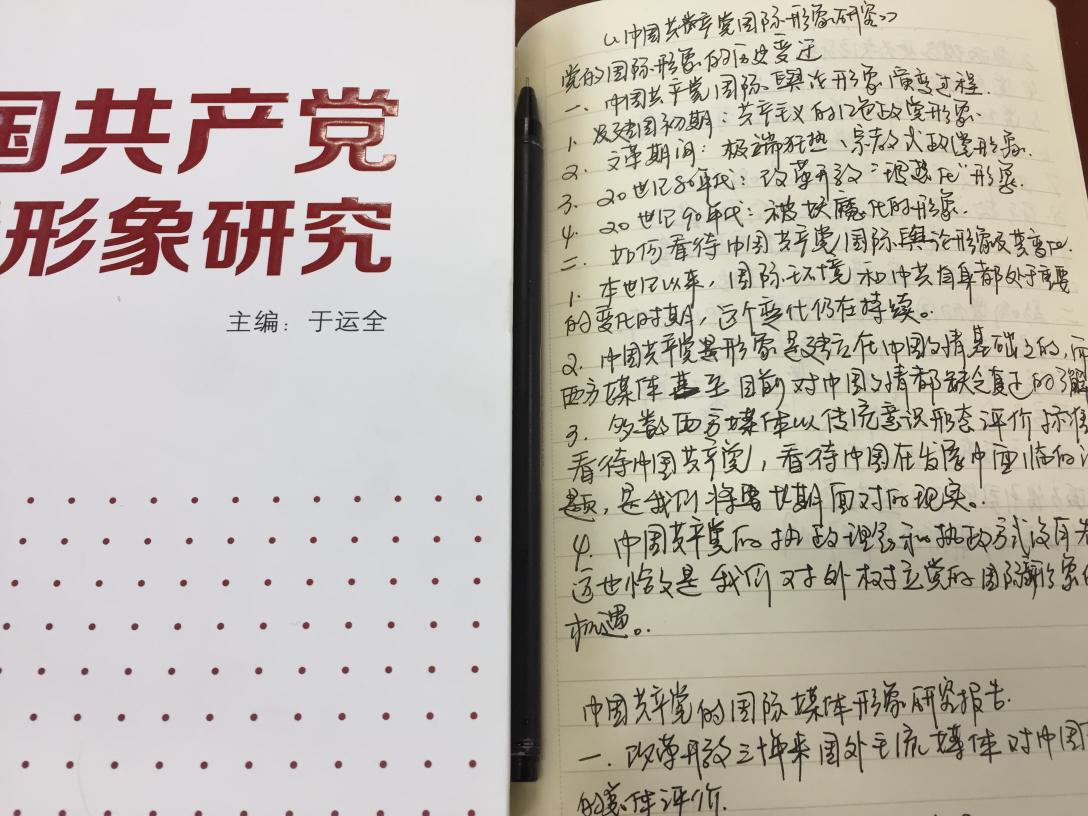 国共产党
形象研究
主编：于运全
《中国共产党国际形象研究》
党的国际形象的历史变迁
一、中国共产党国际舆论形象演变过程.
1. 及建国初期：共产主义的红色政党形象.
2. 文革期间：极端狂热、宗教式政党形象.
3. 20世纪80年代：改革开放“理想化”形象.
4. 20世纪90年代：被妖魔化的形象.
二. 如何看待中国共产党国际舆论形象及其变化.
1. 本世纪以来，国际环境和中共自身都处于重要
的变化时期，这个变化仍在持续。
2. 中国共产党是形象是建立在中国国情基础上的，而
西方媒体甚至目前对中国国情都缺乏真正的了解
3. 多数西方媒体以传统意识形态评价标准
看待中国共产党，看待中国在发展中面临的
题，是我们将要长期面对的现实。
4. 中国共产党的执政理念和执政方式没有
这也恰恰是我们对外树立党的国际形象的
机遇。
中国共产党的国际媒体形象研究报告.
一. 改革开放三十年来国外主流媒体对中国
的总体评价.